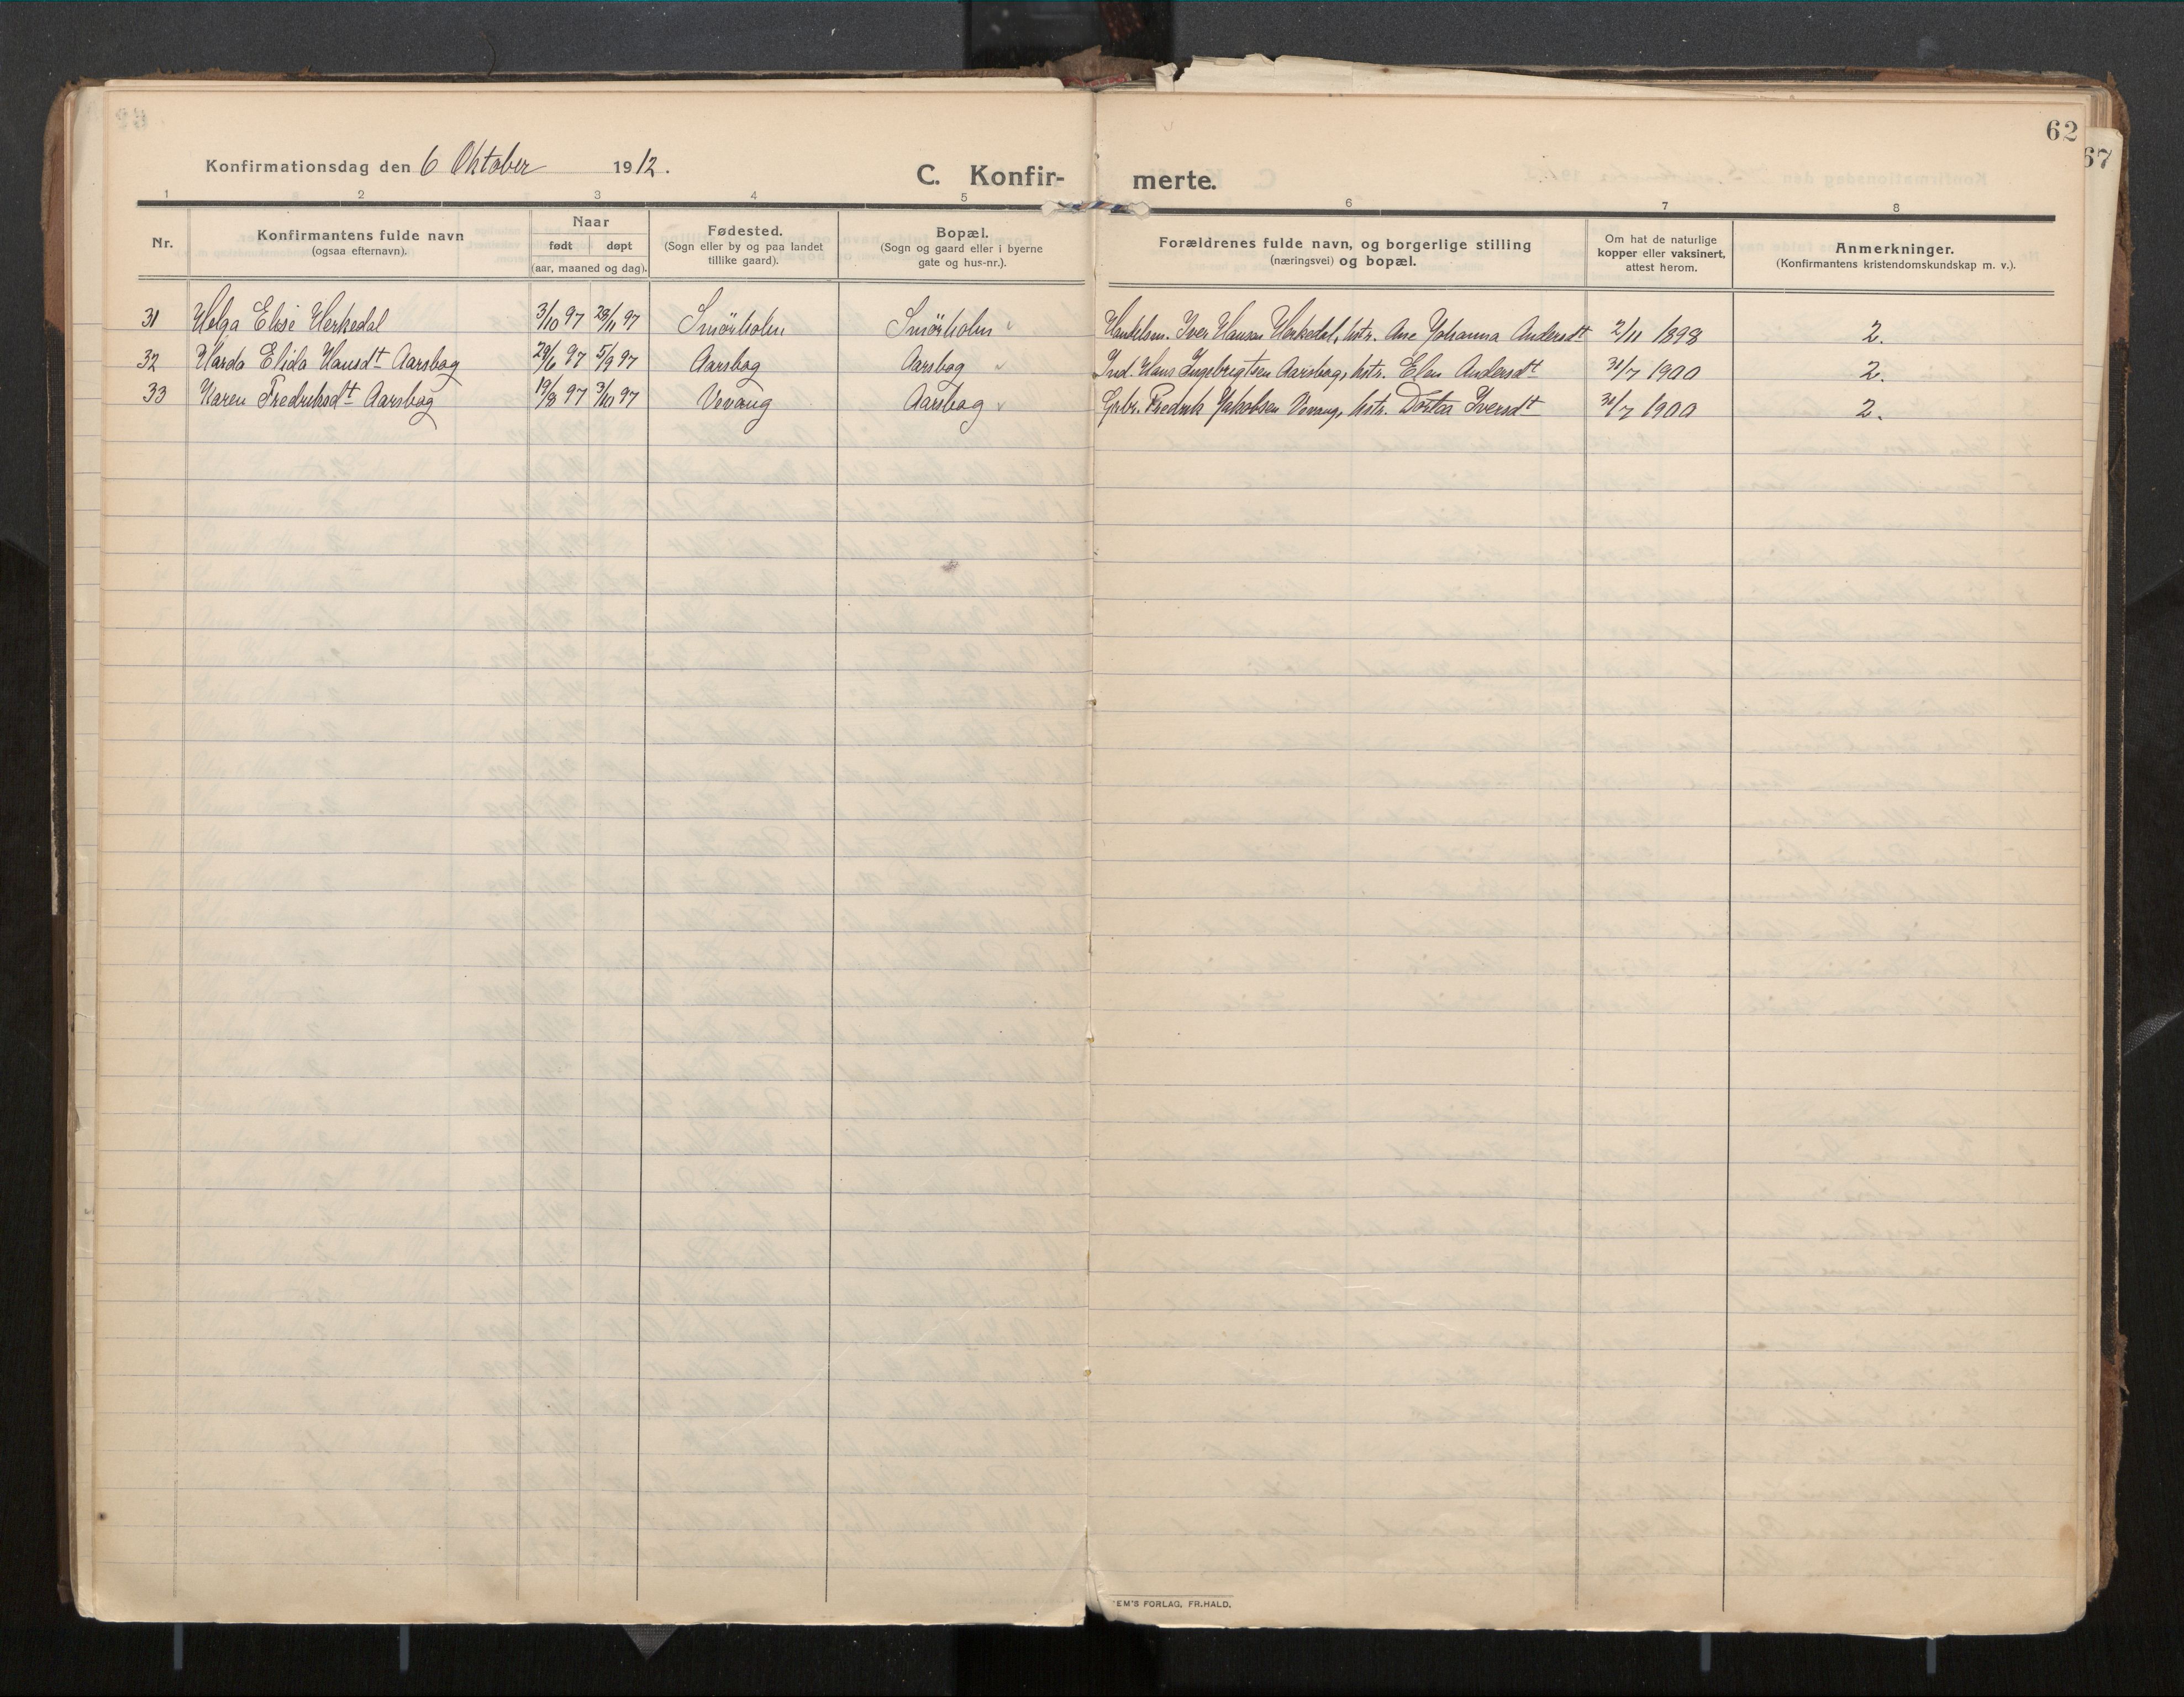 62
67
Konfirmationsdag den 6 Oktober 1912.
C. Konfir- merte.
1 2 3 4 5 6 7 8
Nr.
Konfirmantens fulde navn
(ogsaa efternavn).
Naar
født døpt
(aar, maaned og dag).
Fødested.
(Sogn eller by og paa landet
tillike gaard).
Bopæl.
(Sogn og gaard eller i byerne
gate og hus-nr.).
Forældrenes fulde navn, og borgerlige stilling
(næringsvei) og bopæl.
Om hat de naturlige
kopper eller vaksinert,
attest herom.
Anmerkninger.
(Konfirmantens kristendomskundskap m. v.).
31 Helga Elise Herkedal 3/10 97 28/11 97 Smörholm Smörholm Handelsm. Iver Hansen Herkedal, hstr. Ane Johanna Andersdt 2/11 1898 2.
32 Harda Elida Hansdt Aarsbog 29/6 97 5/9 97 Aarsbog Aarsbog Ind. Hans Ingebrigtsen Aarsbog, hstr. Elen Andersdt 31/7 1900 2.
33 Karen Fredriksdt Aarsbog 19/8 97 3/10 97 Vevang Aarsbog Grbr. Fredrik Jakobsen Vevang, hstr. Dortea Iversdt 31/7 1900 2.
EM'S FORLAG, FR.HALD.